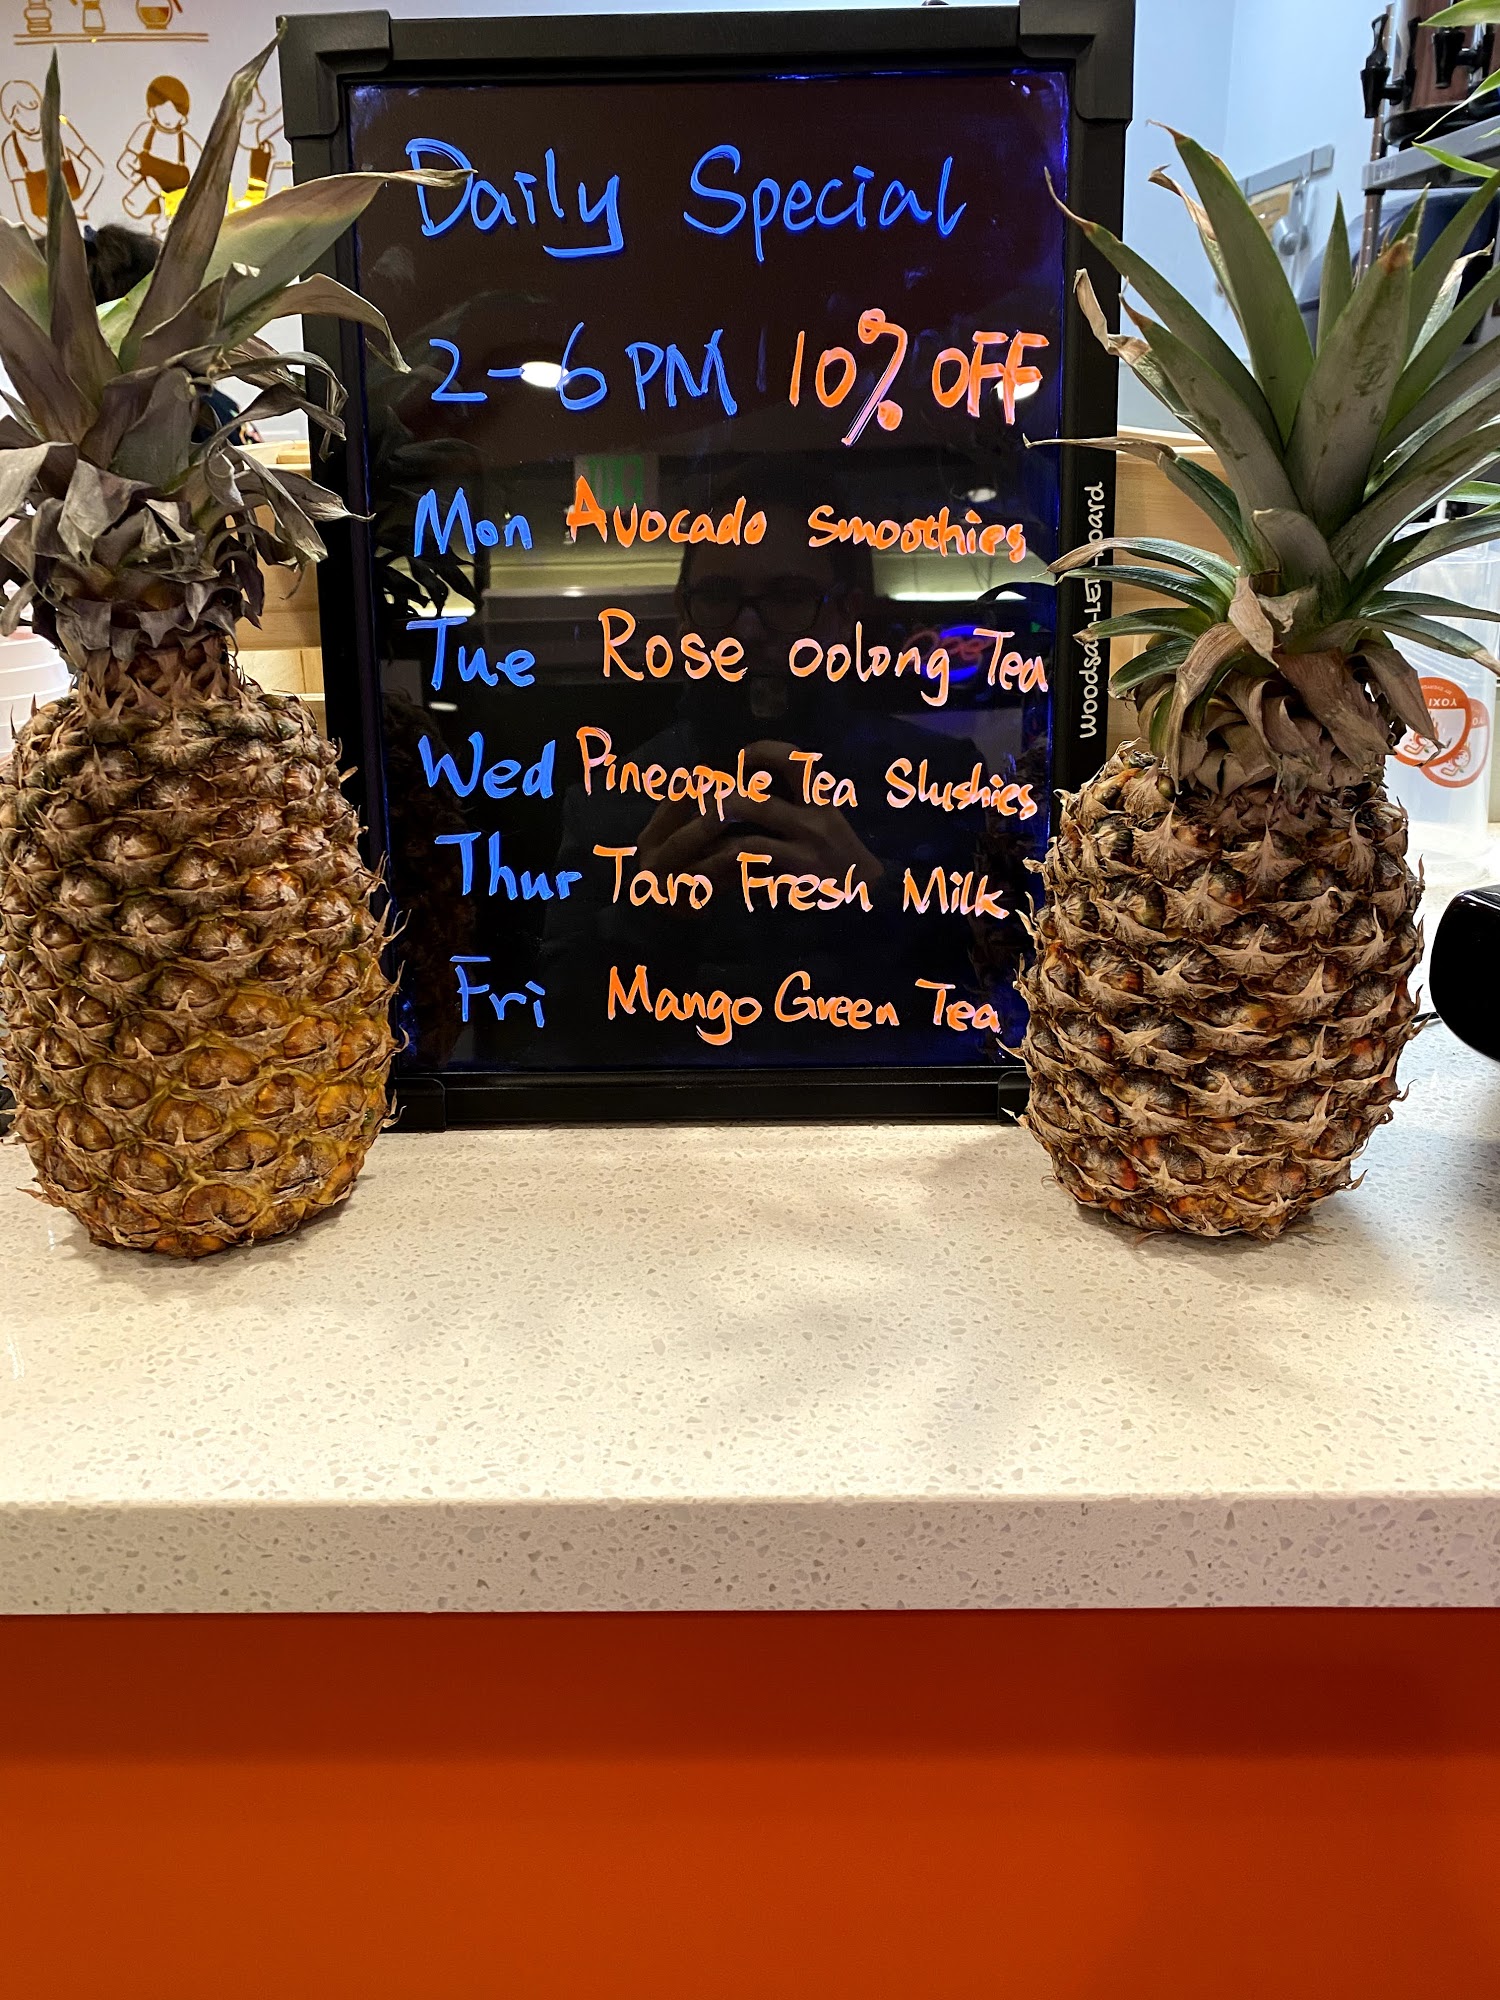 Daily Special
2-6 PM 10% OFF
Mon Avocado Smoothies
Tue Rose Oolong Tea
Wed Pineapple Tea Slushies
Thur Taro Fresh Milk
Fri Mango Green Tea
YOXI